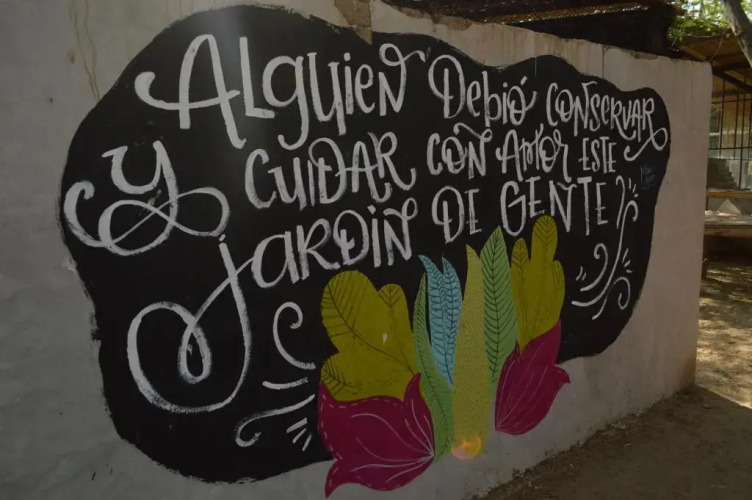 Alguien Debió conservar
y cuidar con Amor este
Jardin de gente